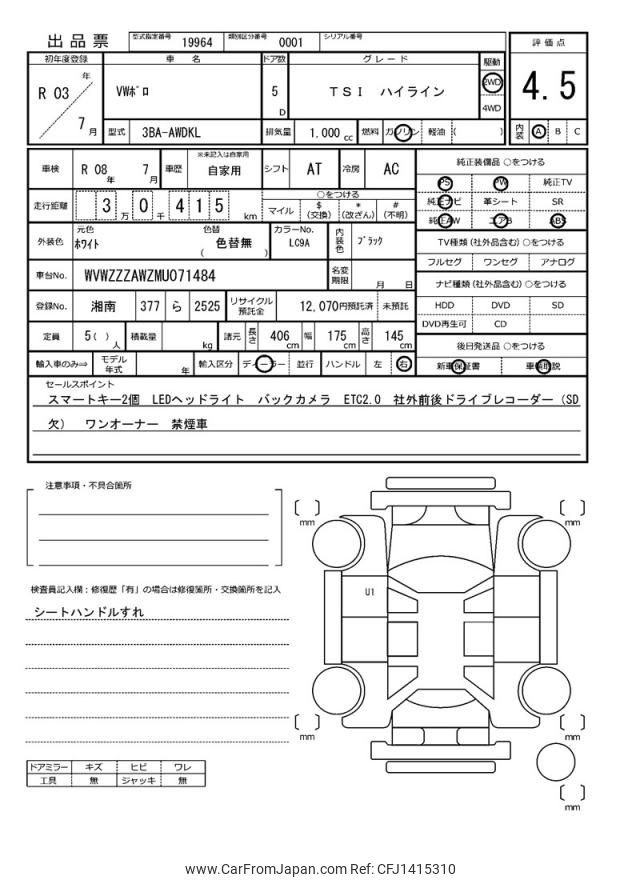 出品票 型式指定番号 19964 類別区分番号 0001 シリアル番号
初年度登録 車名 ドア数 グレード 駆動 評価点
R 03 年 7 月 VWﾎﾟﾛ 5 D TSI ハイライン 2WD 4WD 4.5
型式 3BA-AWDKL 排気量 1.000 cc 燃料 ガソリン 軽油 ( ) 内装 A B C
車検 R 08 年 7 月 車歴 ※未記入は自家用 自家用 シフト AT 冷房 AC
走行距離 3 万 0 千 4 1 5 km ○をつける マイル $ (交換) * (改ざん) # (不明)
外装色 元色 ﾎﾜｲﾄ 色替 ( 色替無 ) カラーNo. LC9A 内装色 ﾌﾞﾗｯｸ
車台No. WVWZZZAWZMU071484 名変期限 月 日
登録No. 湘南 377 ら 2525 リサイクル預託金 12,070円預託済 未預託
定員 5( ) 人 積載量 kg 諸元 長さ 406 cm 幅 175 cm 高さ 145 cm
輸入車のみ⇒ モデル年式 年 輸入区分 ディーラー 並行 ハンドル 左 右
純正装備品 ○をつける
PS PW 純正TV
純正ナビ 革シート SR
純正AW エアB ABS
TV種類 (社外品含む) ○をつける
フルセグ ワンセグ アナログ
ナビ種類 (社外品含む) ○をつける
HDD DVD SD
DVD再生可 CD
後日発送品 ○をつける
新車保証書 車輌取説
セールスポイント
スマートキー2個 LEDヘッドライト バックカメラ ETC2.0 社外前後ドライブレコーダー（SD
欠） ワンオーナー 禁煙車
注意事項・不具合箇所
検査員記入欄：修復歴「有」の場合は修復箇所・交換箇所を記入
シートハンドルすれ
ドアミラー キズ ヒビ ワレ
工具 無 ジャッキ 無
mm
mm
U1
mm
mm
mm
www.CarFromJapan.com Ref: CFJ1415310